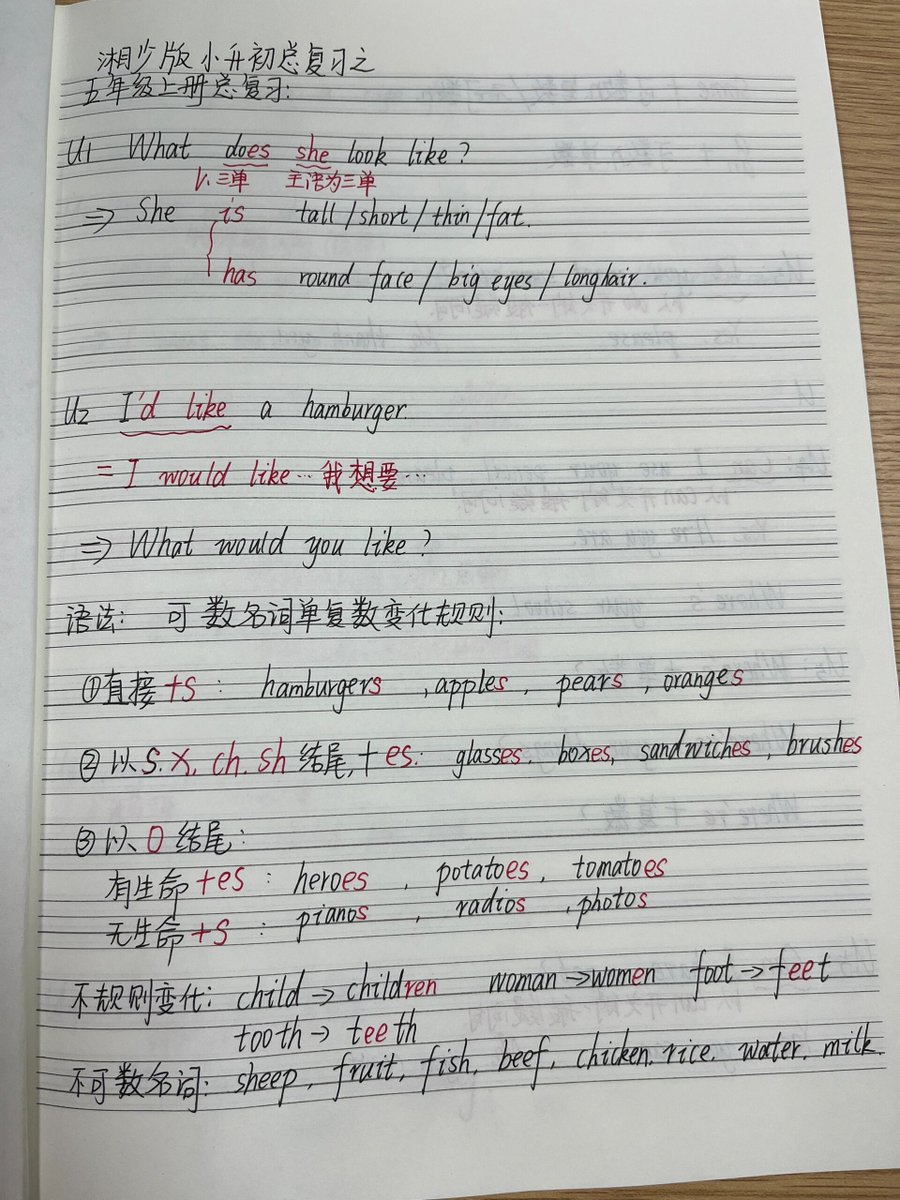 湘少版小升初总复习之
五年级上册总复习:
U1 What does she look like?
V.三单 主语为三单
⇒ She is tall / short / thin / fat.
has round face / big eyes / long hair.
U2 I'd like a hamburger
= I would like…我想要…
⇒ What would you like?
语法: 可数名词单复数变化规则:
①直接+s: hamburgers, apples, pears, oranges
②以s.x.ch.sh结尾,+es: glasses. boxes, sandwiches, brushes
③以O结尾:
有生命+es: heroes, potatoes, tomatoes
无生命+s: pianos, radios, photos
不规则变化: child→children woman→women foot→feet
tooth→teeth
不可数名词: sheep, fruit, fish, beef, chicken. rice. water. milk.